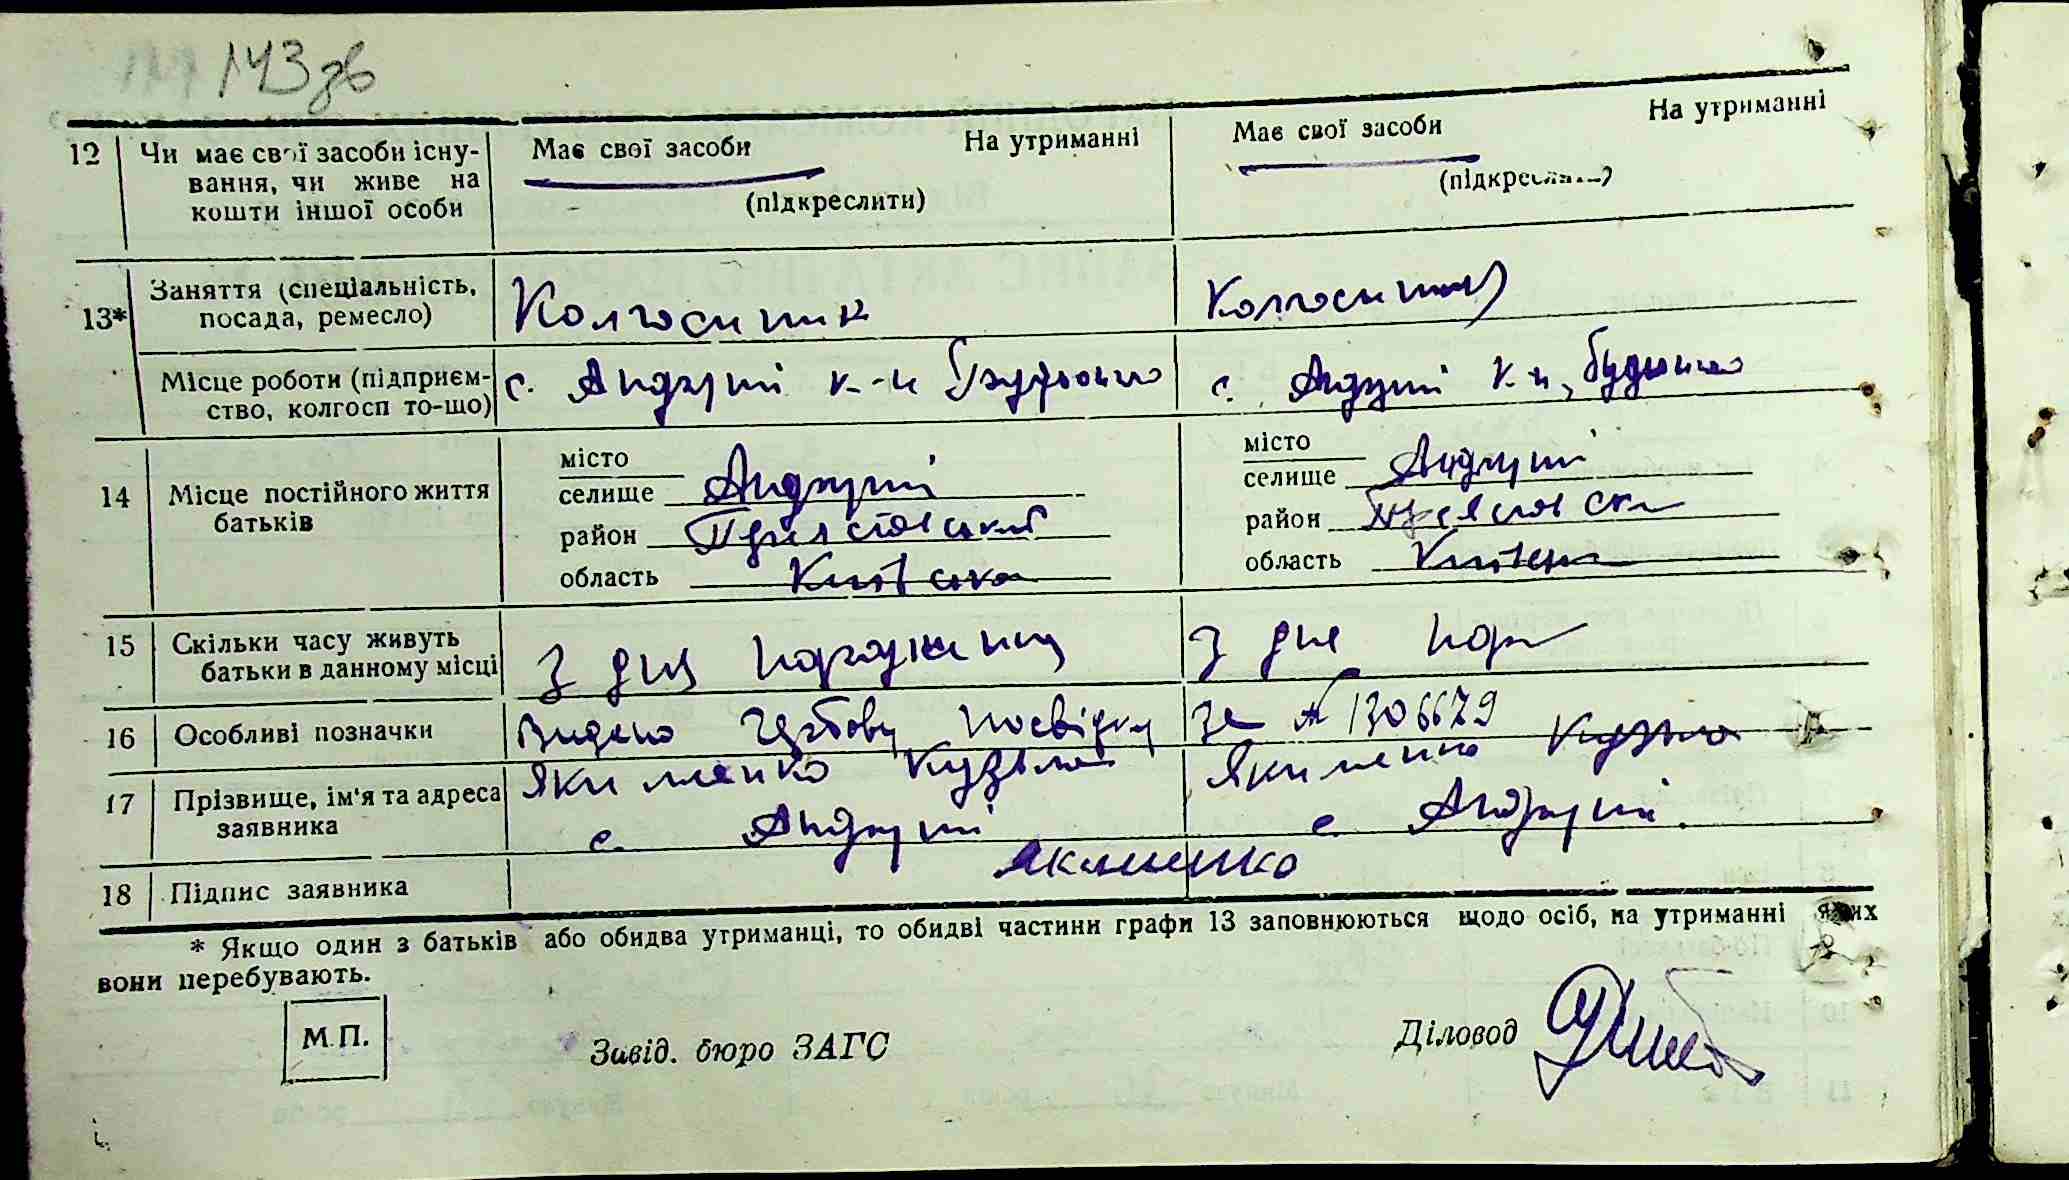 143 зв
12 Чи має свої засоби існування, чи живе на кошти іншої особи Має свої засоби На утриманні (підкреслити) Має свої засоби На утриманні (підкреслити)
13* Заняття (спеціальність, посада, ремесло) Колгоспник Колгоспниця
Місце роботи (підприємство, колгосп то-що) с. Андруші к-п Будьонного с. Андруші к-п, Будьонного
14 Місце постійного життя батьків
місто селище Андруші місто селище Андруші
район Переяславський район Переяславськ
область Київська область Київська
15 Скільки часу живуть батьки в данному місці З дня народження З дня нар
16 Особливі позначки Видано посвідку за № 1306679
17 Прізвище, ім'я та адреса заявника Якименко Кузьма Якименко Кузьма
с. Андруші с. Андруші.
18 Підпис заявника Якименко
* Якщо один з батьків або обидва утриманці, то обидві частини графи 13 заповнюються щодо осіб, на утриманні яких
вони перебувають.
М.П. Завід. бюро ЗАГС Діловод